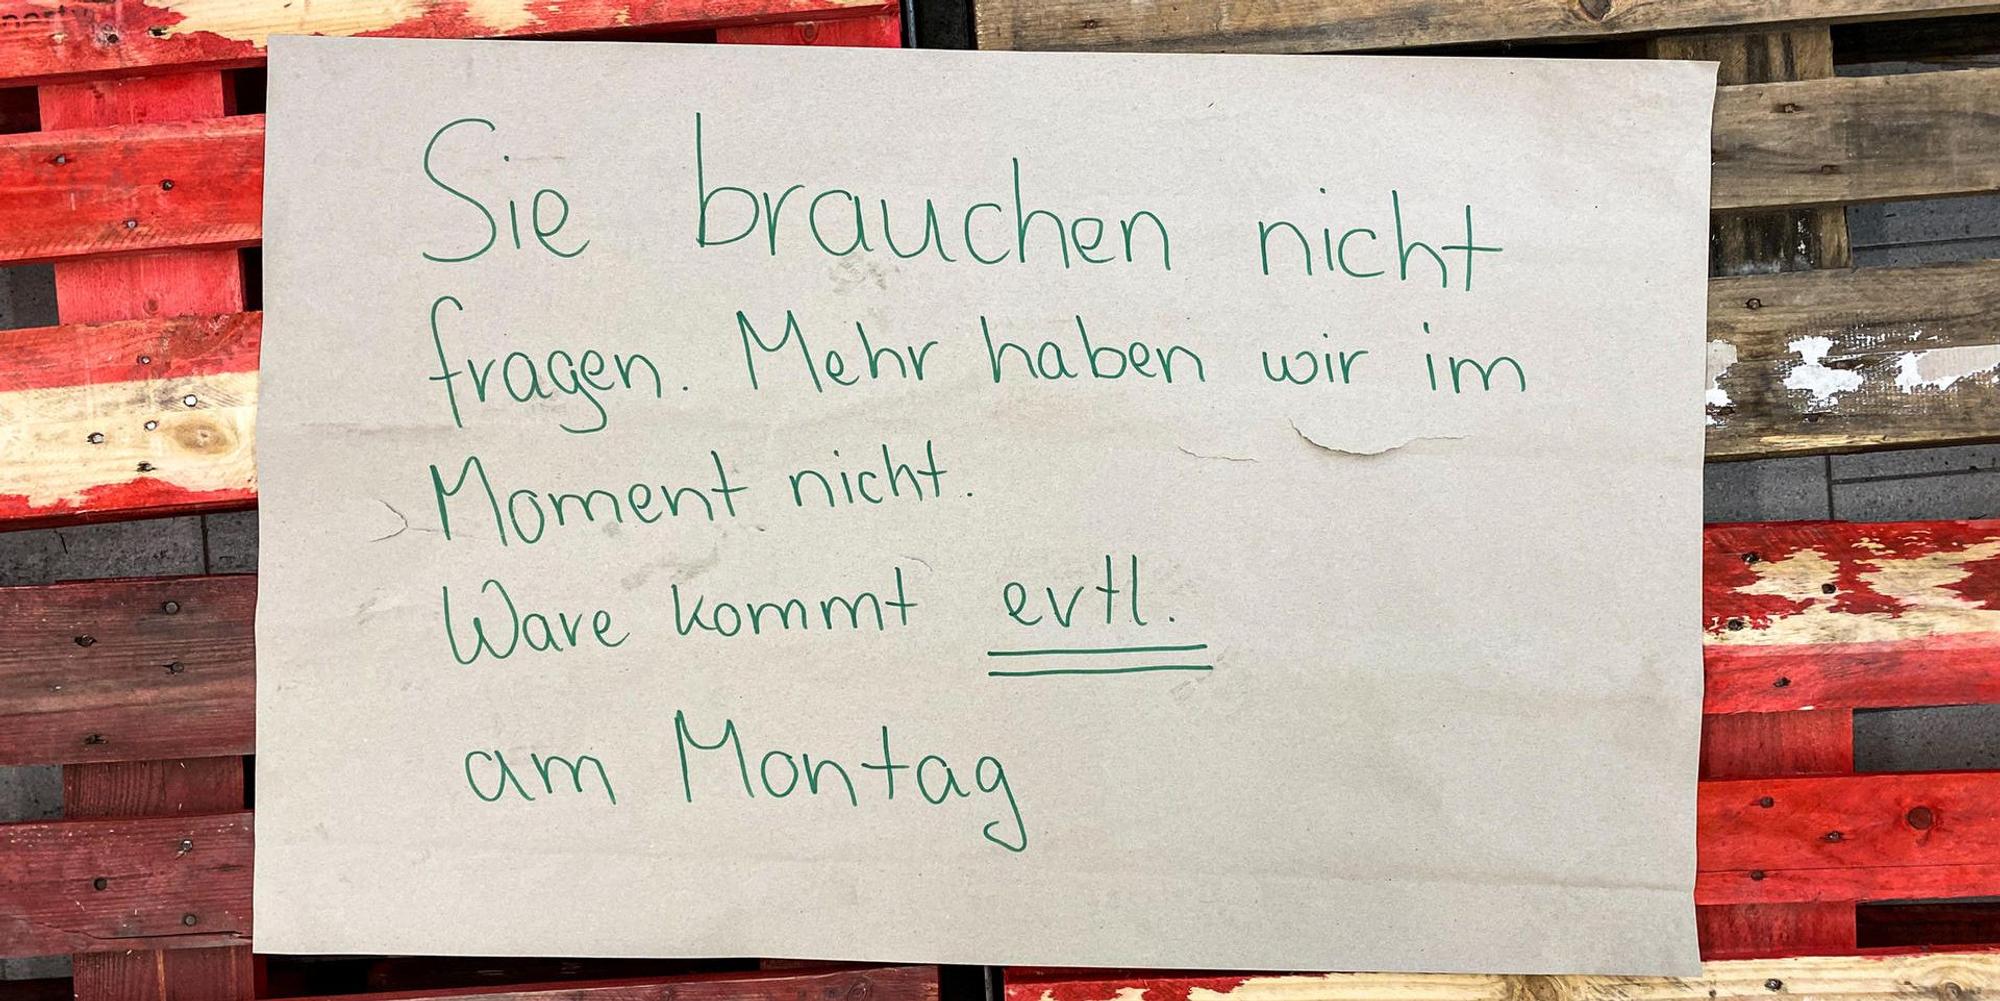 Sie brauchen nicht
fragen. Mehr haben wir im
Moment nicht.
Ware kommt evtl.
am Montag